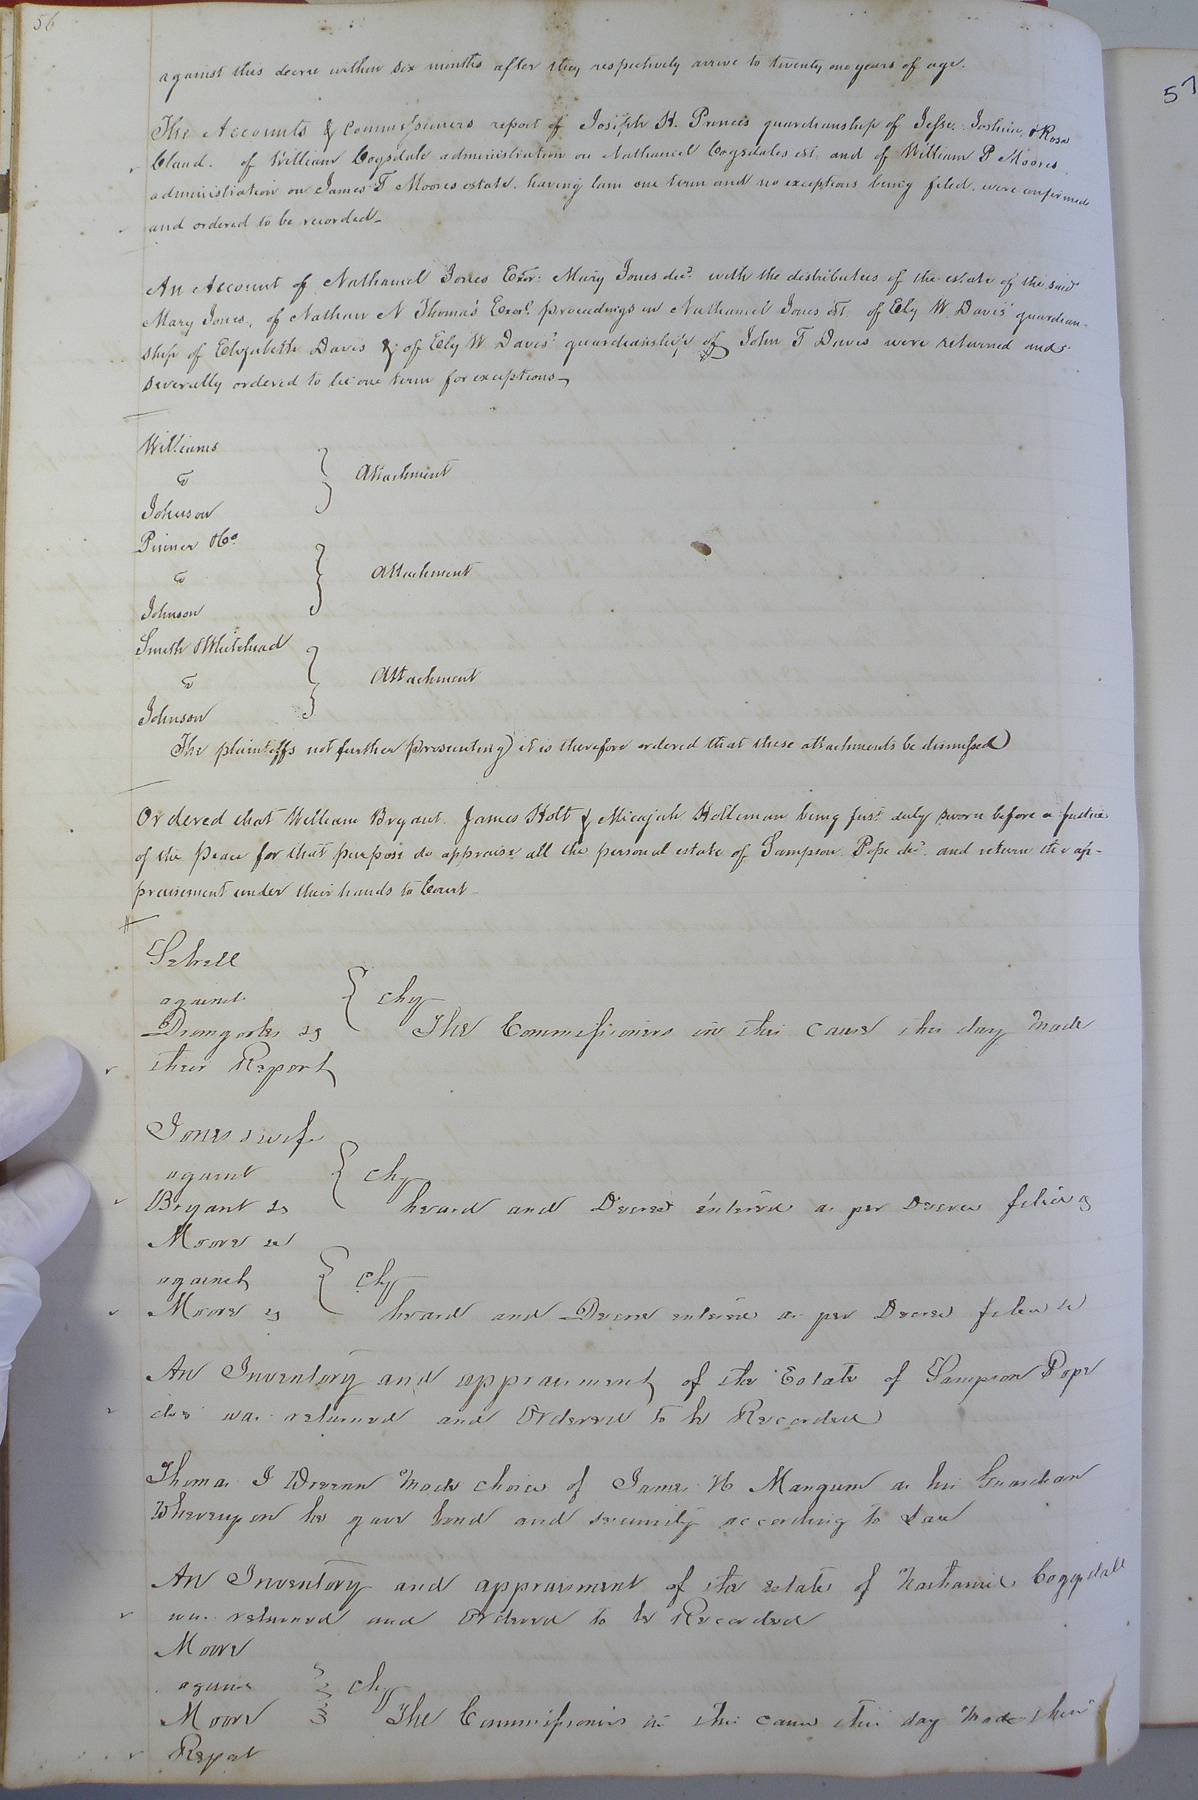 56
against this decree within six months after they respectively arrive to twenty one years of age.
The Accounts & Commissioners report of Joseph H. Prince's guardianship of Jesse, Joshua, & Rosa
Claud. of William Cogsdale administration on Nathaniel Cogsdales est. and of William P Moores
administration on James T Moores estate. having lain one term and no exceptions being filed. were confirmed
and ordered to be recorded_
An Account of Nathaniel Jones Exor: Mary Jones decd. with the distributees of the estate of the said
Mary Jones, of Nathan N Thomas's Exors. proceedings in Nathaniel Jones est. of Ely W. Davis' guardian-
ship of Elizabeth Davis & of Ely W Davis' guardianship of John T Davis were returned and
severally ordered to lie one term for exceptions_
Williams
v
Johnson
Attachment
Pinner & Co
v
Johnson
Attachment
Smith & Whitehead
v
Johnson
Attachment
The plaintiffs not further prosecuting it is therefore ordered that these attachments be dismissed
Ordered that William Bryant. James Holt & Micajah Holleman being first duly sworn before a justice
of the peace for that purpose do appraise all the personal estate of Sampson Pope decd. and return the ap-
praisement under their hands to Court_
Sebrell
against
Dromgoole &c
Chy
The Commissioners in this cause this day made
their Report
Jones & wife
against
Bryant &c
Chy
heard and Decree entered as per Decree filed &c
Moore &c
against
Moore &c
Chy
heard and Decree entered as per Decree filed &c
An Inventory and appraisement of the Estate of Sampson Pope
decd was returned and Ordered to be Recorded
Thomas J made choice of James H Mangum as his Guardian
Whereupon he gave bond and security according to Law
An Inventory and appraisement of the estate of Nathaniel Cogsdale
was returned and Ordered to be Recorded
Moore
against
Moore
Chy
The Commissioners in this cause this day made their
Report
57